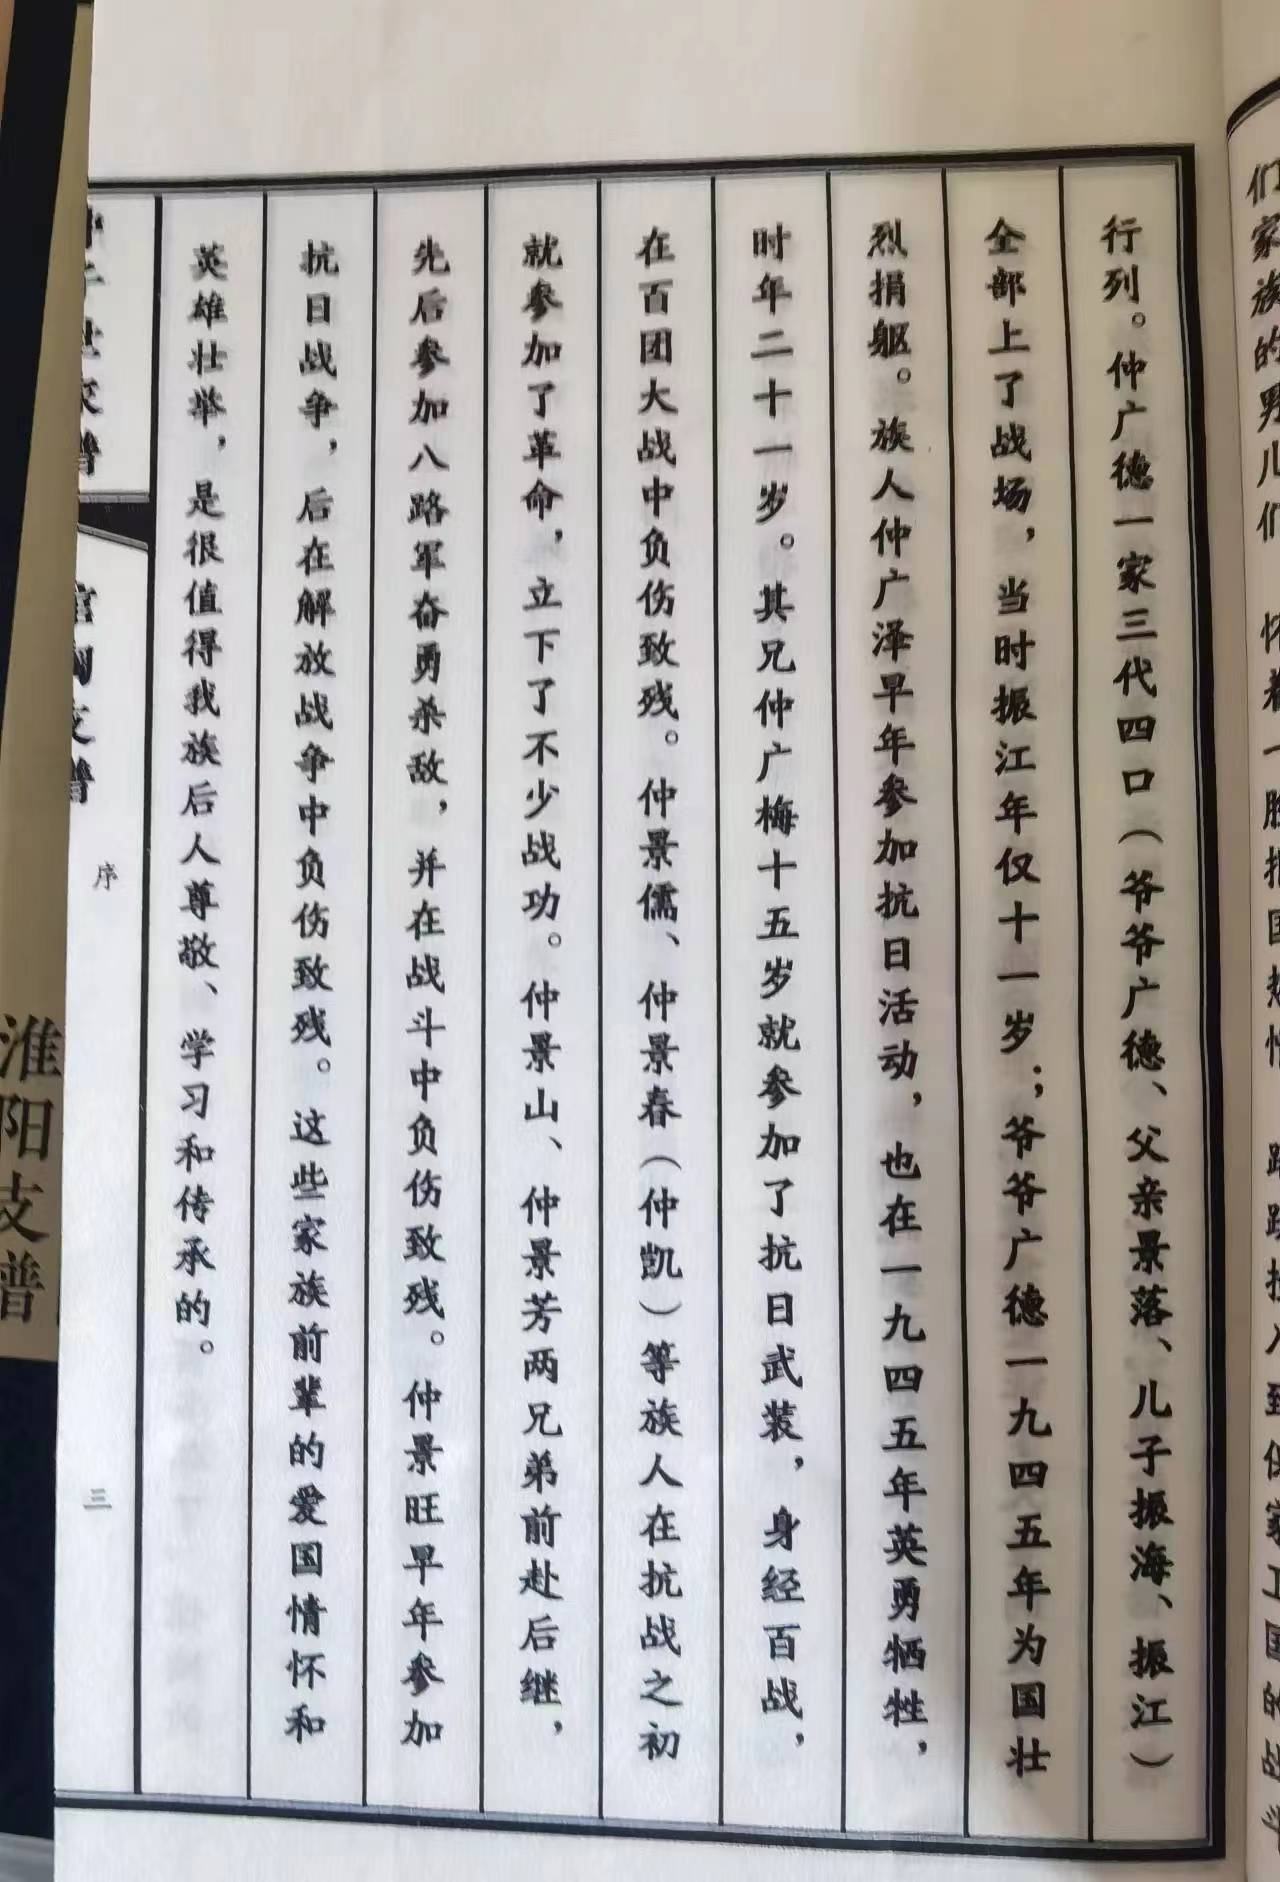 行列。仲广德一家三代四口（爷爷广德、父亲景落、儿子振海、振江）
全部上了战场，当时振江年仅十一岁；爷爷广德一九四五年为国壮
烈捐躯。族人仲广泽早年参加抗日活动，也在一九四五年英勇牺牲，
时年二十一岁。其兄仲广梅十五岁就参加了抗日武装，身经百战，
在百团大战中负伤致残。仲景儒、仲景春（仲凯）等族人在抗战之初
就参加了革命，立下了不少战功。仲景山、仲景芳两兄弟前赴后继，
先后参加八路军奋勇杀敌，并在战斗中负伤致残。仲景旺早年参加
抗日战争，后在解放战争中负伤致残。这些家族前辈的爱国情怀和
英雄壮举，是很值得我族后人尊敬、学习和传承的。
序
三
淮阳支谱
们家族的男儿们